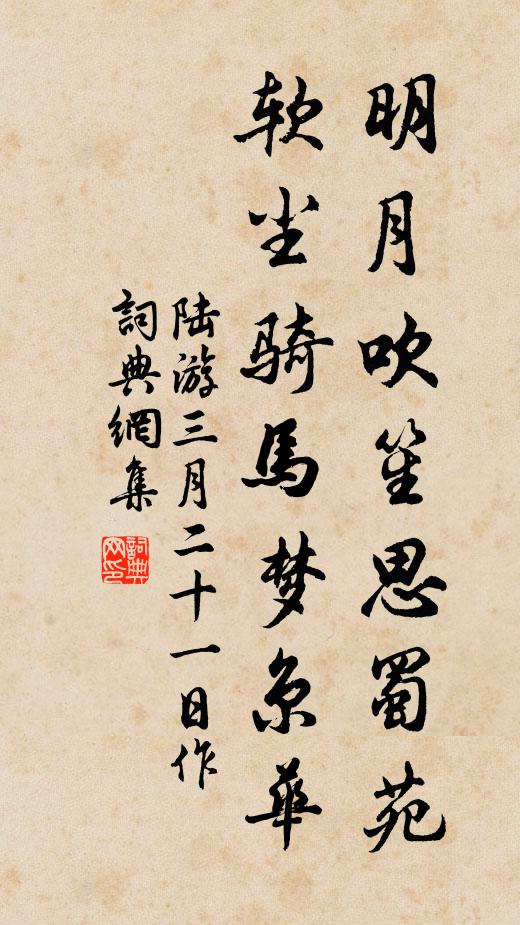 明月吹笙思蜀苑
软尘骑馬梦京華
陆游三月二十一日作
詞典網集
詞典网印